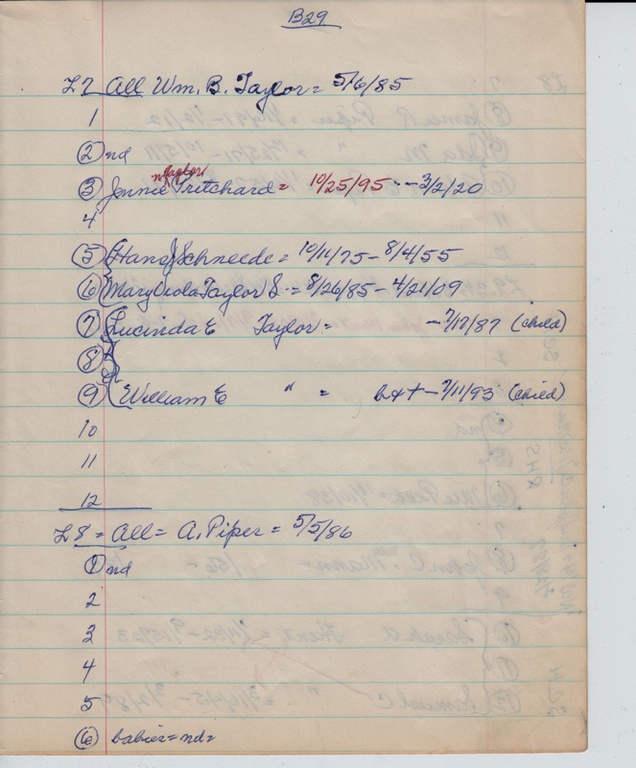 B29
L7 All Wm. B. Taylor = 5/6/85
1
② nd
③ Jennie Pritchard = 10/25/95 -- 3/2/20
4
⑤ Hans Schneede = 10/11/75 - 8/4/55
⑥ Mary Viola Taylor S. = 8/26/85 - 4/21/09
⑦ Lucinda E Taylor = - 7/17/87 (child)
⑧
⑨ William E " = b+t - 7/11/93 (child)
10
11
12
L8 = All = A. Piper = 5/5/86
① nd
2
3
4
5
⑥ babies = nd =